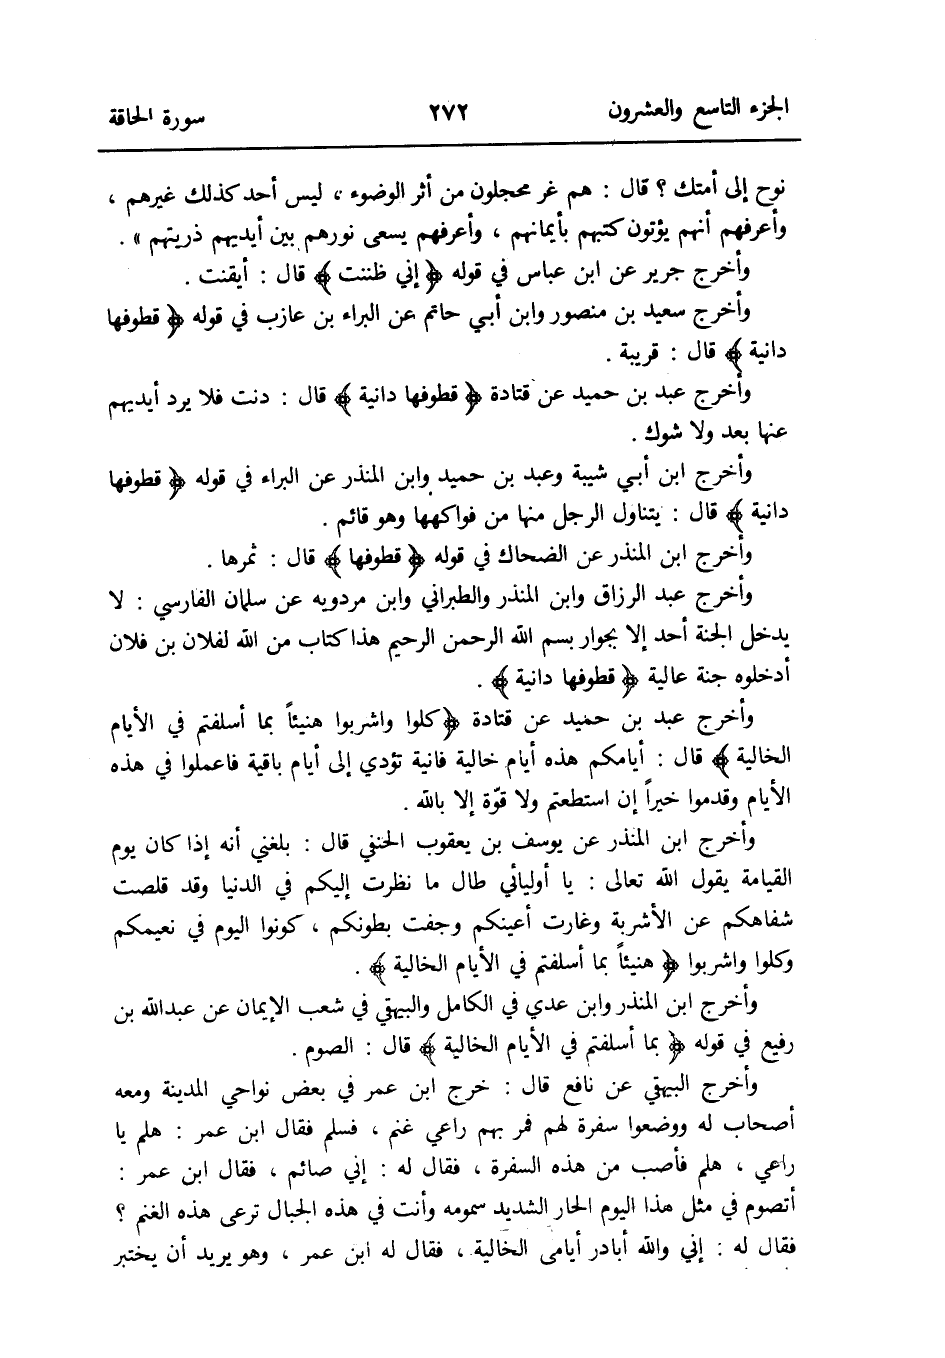 الجزء التاسع والعشرون ٢٧٢ سورة الحاقة
نوح إلى أمتك ؟ قال : هم غر محجلون من أثر الوضوء ، ليس أحد كذلك غيرهم ،
وأعرفهم أنهم يؤتون كتبهم بأيمانهم ، وأعرفهم يسعى نورهم بين أيديهم ذريتهم » .
وأخرج جرير عن ابن عباس في قوله ﴿ إني ظننت ﴾ قال : أيقنت .
وأخرج سعيد بن منصور وابن أبي حاتم عن البراء بن عازب في قوله ﴿ قطوفها
دانية ﴾ قال : قريبة .
وأخرج عبد بن حميد عن قتادة ﴿ قطوفها دانية ﴾ قال : دنت فلا يرد أيديهم
عنها بعد ولا شوك .
وأخرج ابن أبي شيبة وعبد بن حميد وابن المنذر عن البراء في قوله ﴿ قطوفها
دانية ﴾ قال : يتناول الرجل منها من فواكهها وهو قائم .
وأخرج ابن المنذر عن الضحاك في قوله ﴿ قطوفها ﴾ قال : ثمرها .
وأخرج عبد الرزاق وابن المنذر والطبراني وابن مردويه عن سلمان الفارسي : لا
يدخل الجنة أحد إلا بجوار بسم الله الرحمن الرحيم هذا كتاب من الله لفلان بن فلان
أدخلوه جنة عالية ﴿ قطوفها دانية ﴾ .
وأخرج عبد بن حميد عن قتادة ﴿ كلوا واشربوا هنيئاً بما أسلفتم في الأيام
الخالية ﴾ قال : أيامكم هذه أيام خالية فانية تؤدي إلى أيام باقية فاعملوا في هذه
الأيام وقدموا خيراً إن استطعتم ولا قوّة إلا بالله .
وأخرج ابن المنذر عن يوسف بن يعقوب الحنفي قال : بلغني أنه إذا كان يوم
القيامة يقول الله تعالى : يا أوليائي طال ما نظرت إليكم في الدنيا وقد قلصت
شفاهكم عن الأشربة وغارت أعينكم وجفت بطونكم ، كونوا اليوم في نعيمكم
وكلوا واشربوا ﴿ هنيئاً بما أسلفتم في الأيام الخالية ﴾ .
وأخرج ابن المنذر وابن عدي في الكامل والبيهقي في شعب الإيمان عن عبدالله بن
رفيع في قوله ﴿ بما أسلفتم في الأيام الخالية ﴾ قال : الصوم .
وأخرج البيهقي عن نافع قال : خرج ابن عمر في بعض نواحي المدينة ومعه
أصحاب له ووضعوا سفرة لهم فمر بهم راعي غنم ، فسلم فقال ابن عمر : هلم يا
راعي ، هلم فأصب من هذه السفرة ، فقال له : إني صائم ، فقال ابن عمر :
أتصوم في مثل هذا اليوم الحار الشديد سمومه وأنت في هذه الجبال ترعى هذه الغنم ؟
فقال له : إني والله أبادر أيامى الخالية ، فقال له ابن عمر ، وهو يريد أن يختبر